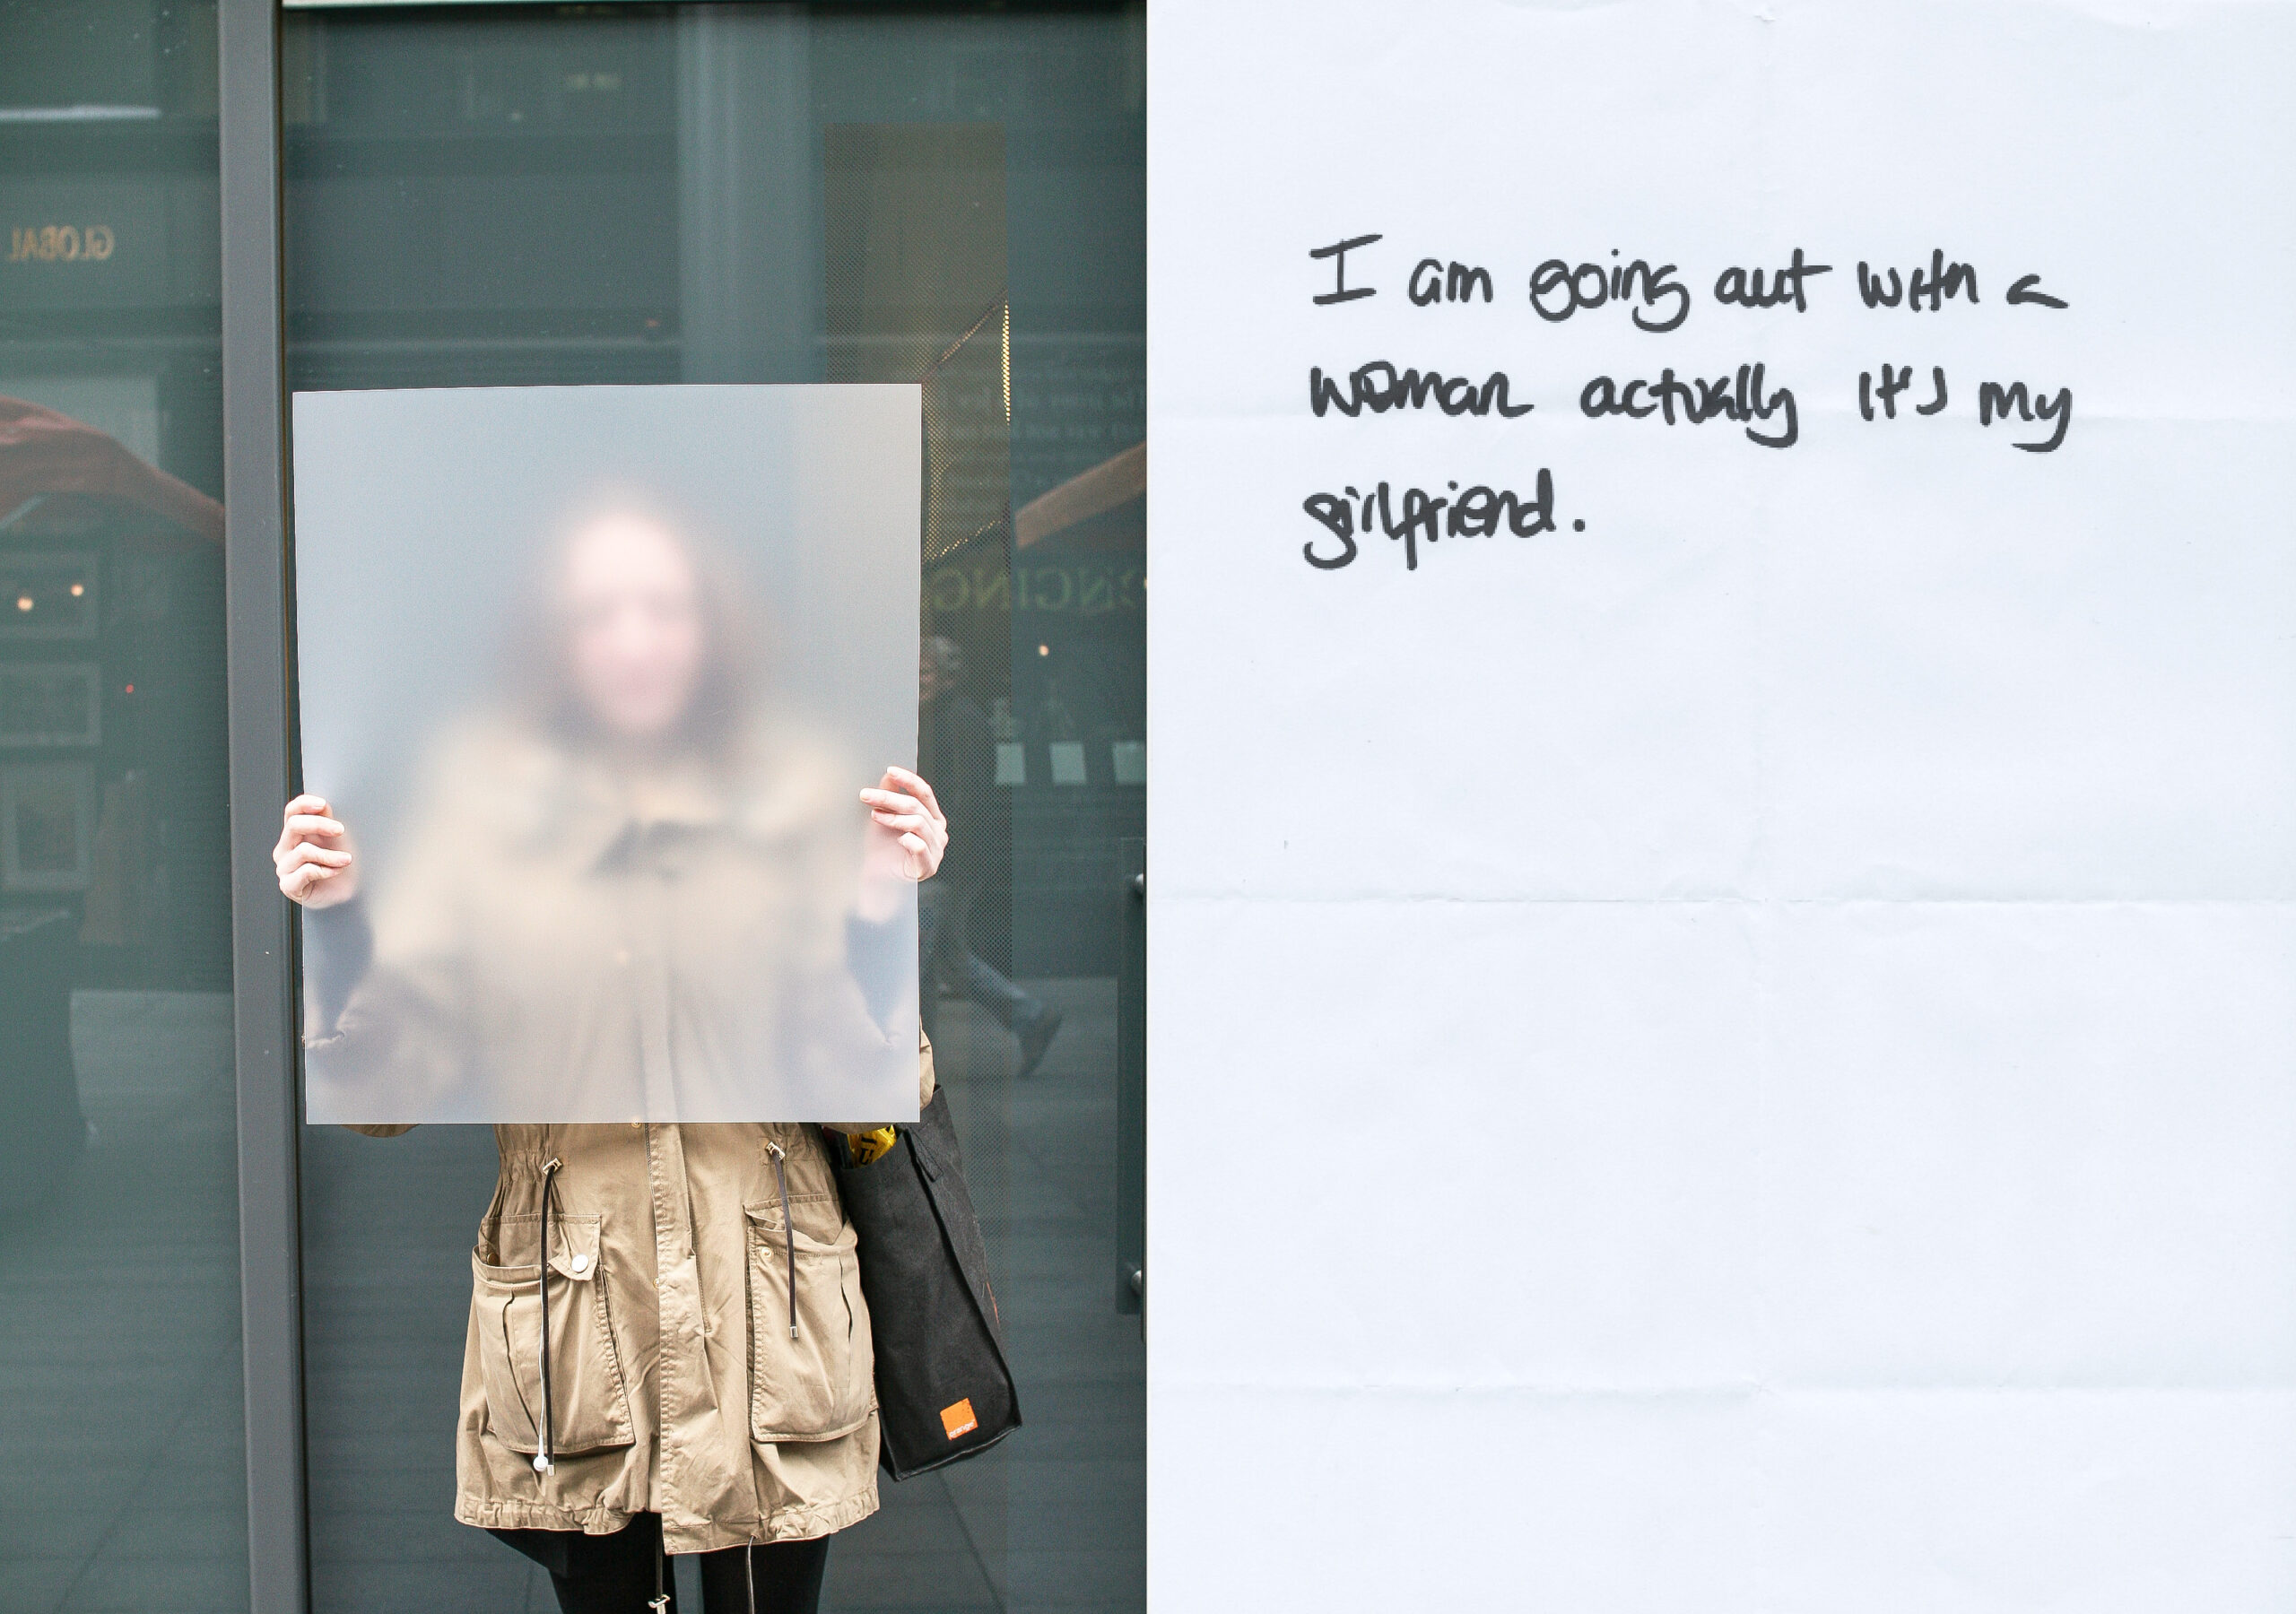 GLOBAL
I am going out with a
woman actually it's my
girlfriend.